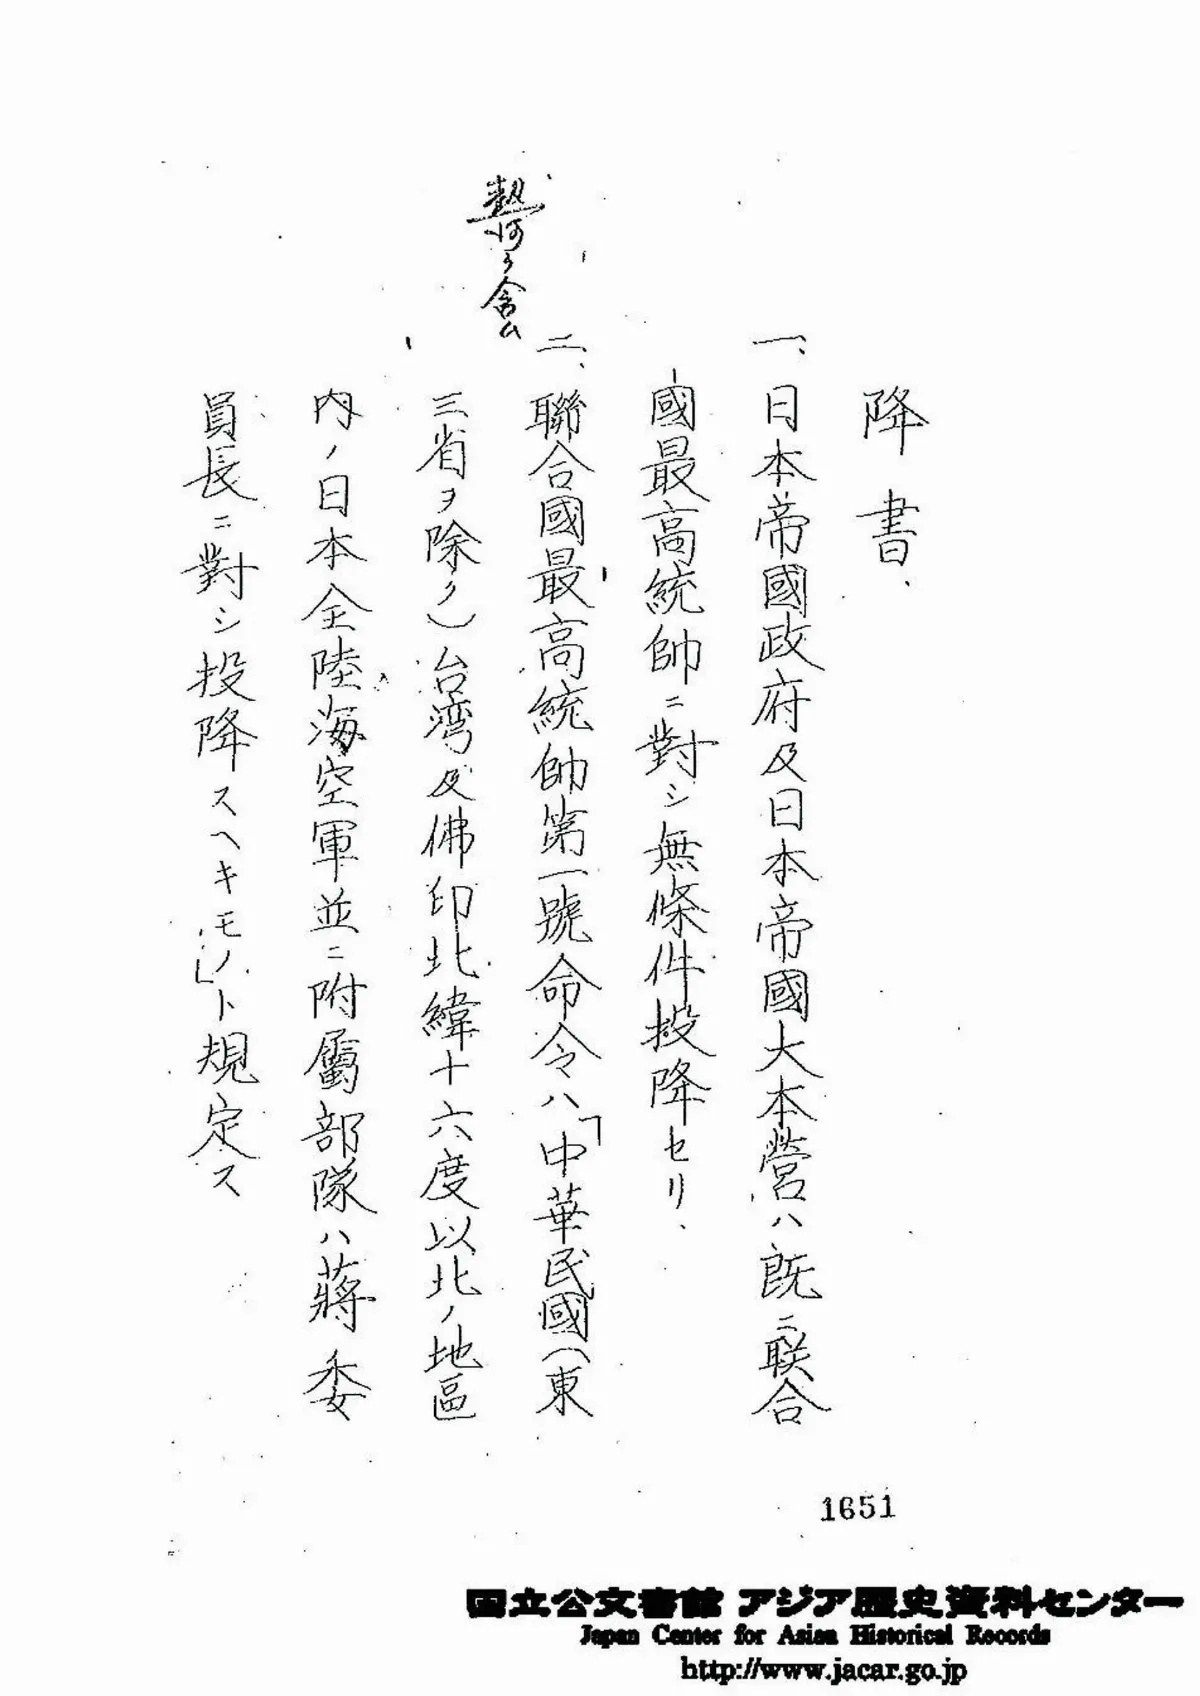 降書、
一、日本帝國政府及日本帝國大本營ハ既ニ联合
國最高統帥ニ對シ無條件投降セリ、
二、聯合國最高統帥第一號命令ハ「中華民國(東
熱河ヲ含ム
三省ヲ除ク)台湾及佛印北緯十六度以北ノ地區
内ノ日本全陸海空軍並ニ附屬部隊ハ蔣委
員長ニ對シ投降スヘキモノ」ト規定ス
1651
国立公文書館 アジア歴史資料センター
Japan Center for Asian Historical Records
http://www.jacar.go.jp